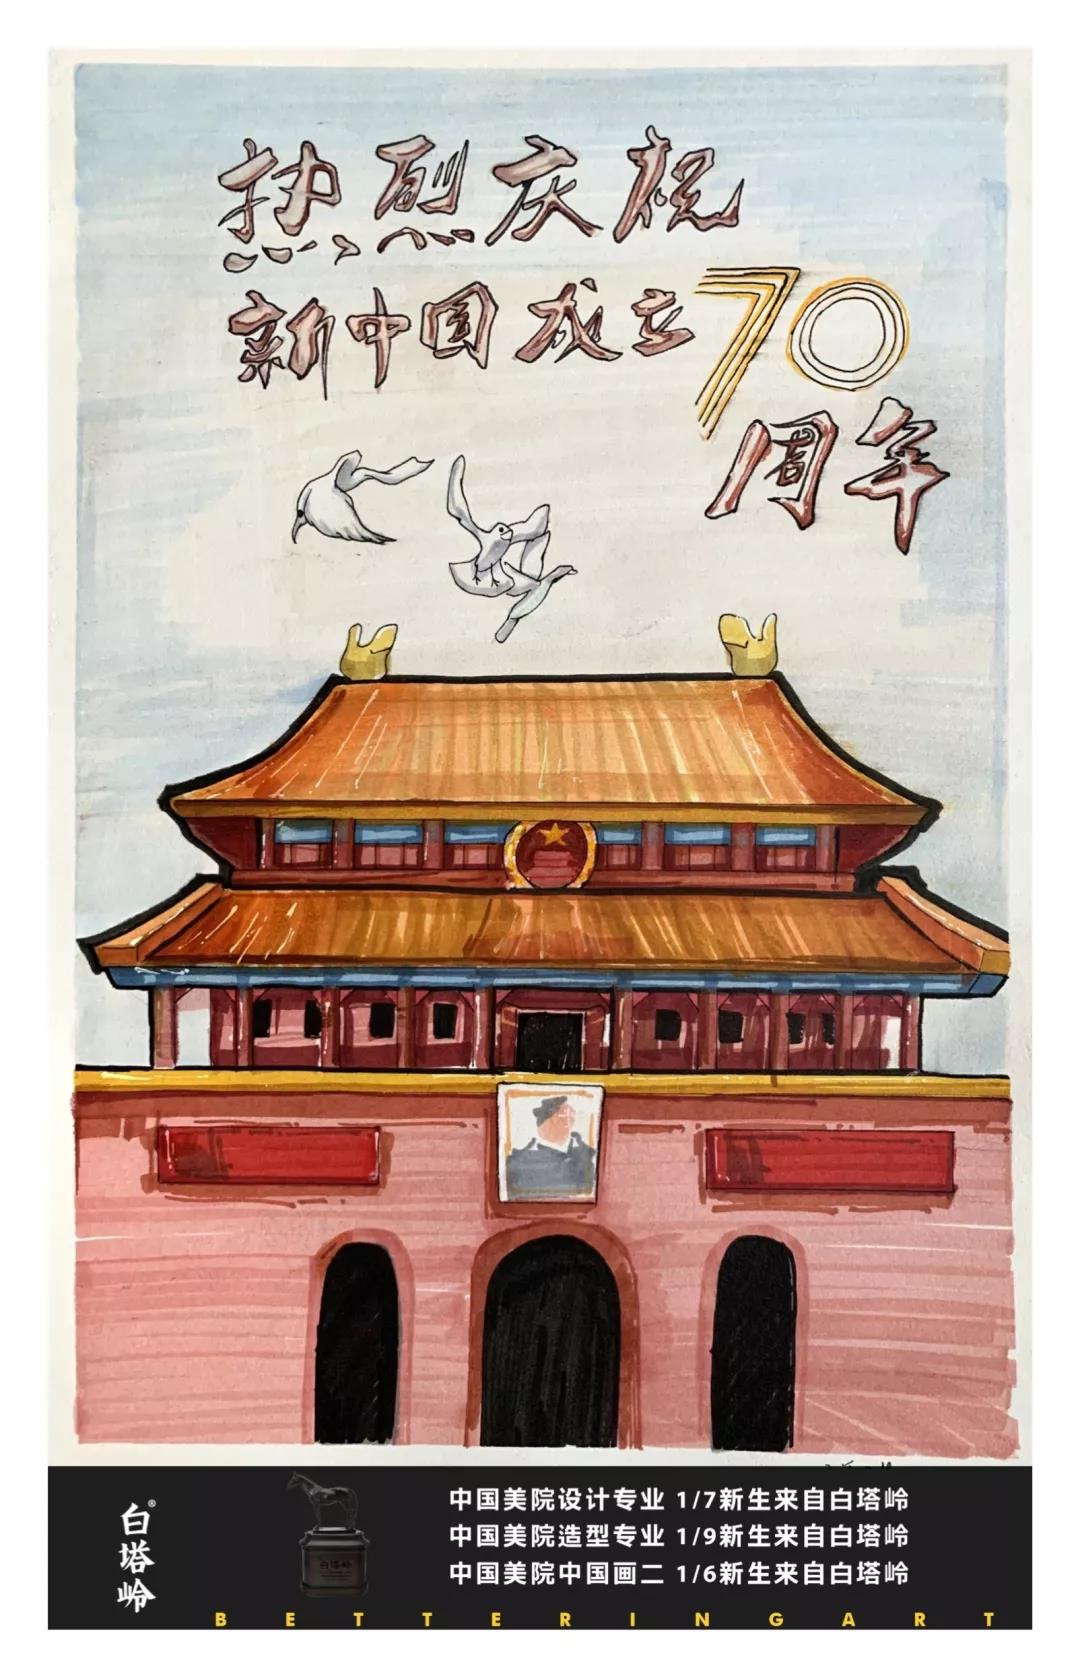 热烈庆祝
新中国成立70
周年
白塔岭
白塔岭
中国美院设计专业 1/7新生来自白塔岭
中国美院造型专业 1/9新生来自白塔岭
中国美院中国画二 1/6新生来自白塔岭
BETTERINGART